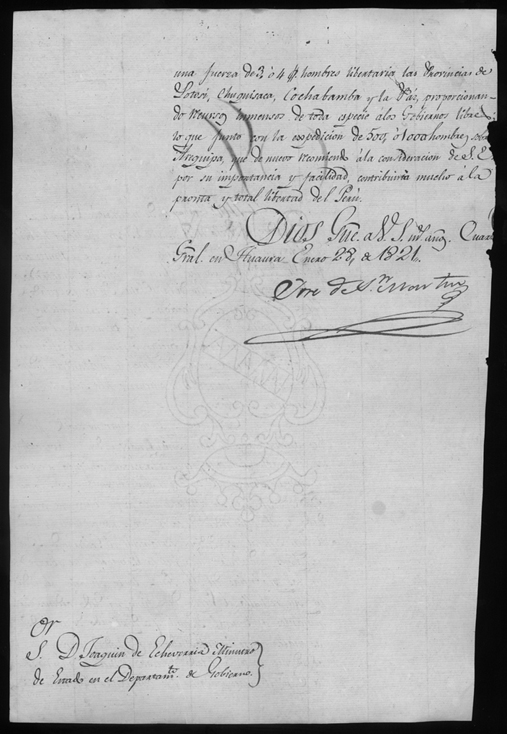 una fuerza de 3 ó 4 hombres libertaria las Provincias de
Potosi, Chuquisaca, Cochabamba y la Paz, proporcionan-
do recursos inmensos de toda especie alos Gobiernos libres
lo que junto con la expedicion de 500, ó 1000 hombres, sobre
Arequipa, que de nuevo recomiendo á la consideracion de S.E.
por su importancia y facilidad, contribuiria mucho a la
pronta y total libertad del Perú.
Dios Gue. a V.S. ms. añs. Cuart
Gral. en Huaura Enero 23, de 1821.
Jose de Sn. Martin
Or
S. D. Joaquin de Echeverria Ministro
de Estado en el Departamto. de Gobierno.